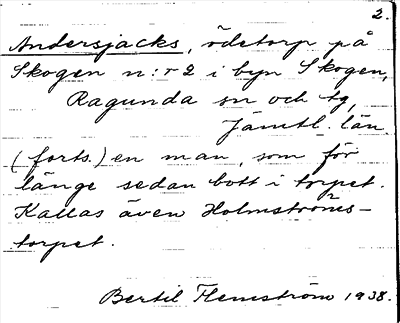 2.
Andersjacks, ödetorp på
Skogen n:r 2 i byn Skogen,
Ragunda sn och tg,
Jämtl. län.
(forts.) en man, som för
länge sedan bott i torpet.
Kallas även Holmströms-
torpet.
Bertil Flemström 1938.